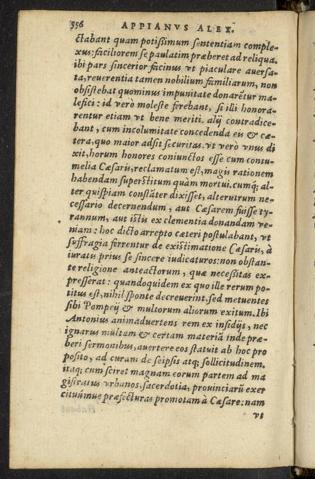 356 APPIANVS ALEX.
ctabant quam potissimum sententiam comple-
xus: faciliorem se paulatim præberet ad reliqua.
ibi pars sincerior facinus vt piaculare auersa-
ta, reuerentia tamen nobilium familiarum, non
obsistebat quominus impunitate donarẽtur ma-
lefici: id verò molestè ferebant, si illi honora-
rentur etiam vt bene meriti. alij contradice-
bant, cum incolumitate concedenda eis & cæ-
tera, quo maior adsit securitas. vt verò vnus di
xit, horum honores coniunctos esse cum contu-
melia Cæsaris, reclamatum est, magis rationem
habendam superstitum quàm mortui. cumq; al-
ter quispiam constãter dixisset, alterutrum ne-
cessario decernendum, aut Cæsarem fuisse ty-
rannum, aut istis ex clementia donandam ve-
niam: hoc dicto arrepto cæteri postulabant, vt
suffragia ferrentur de existimatione Cæsaris, à
iuratis prius se sincere iudicaturos: non obstan-
te religione anteactorum, quæ necessitas ex-
presserat: quandoquidem ex quo ille rerum po-
titus est, nihil sponte decreuerint, sed metuentes
sibi Pompeij & multorum aliorum exitum. Ibi
Antonius animaduertens rem ex insidijs, nec
ignarus multam & certam materiã inde præ-
beri sermonibus, auertere eos statuit ab hoc pro
posito, ad curam de seipsis atq; sollicitudinem.
itaq; cum sciret magnam eorum partem ad ma
gistratus vrbanos, sacerdotia, prouinciarũ exer
cituũmue præfecturas promotam à Cæsare: nam
vt